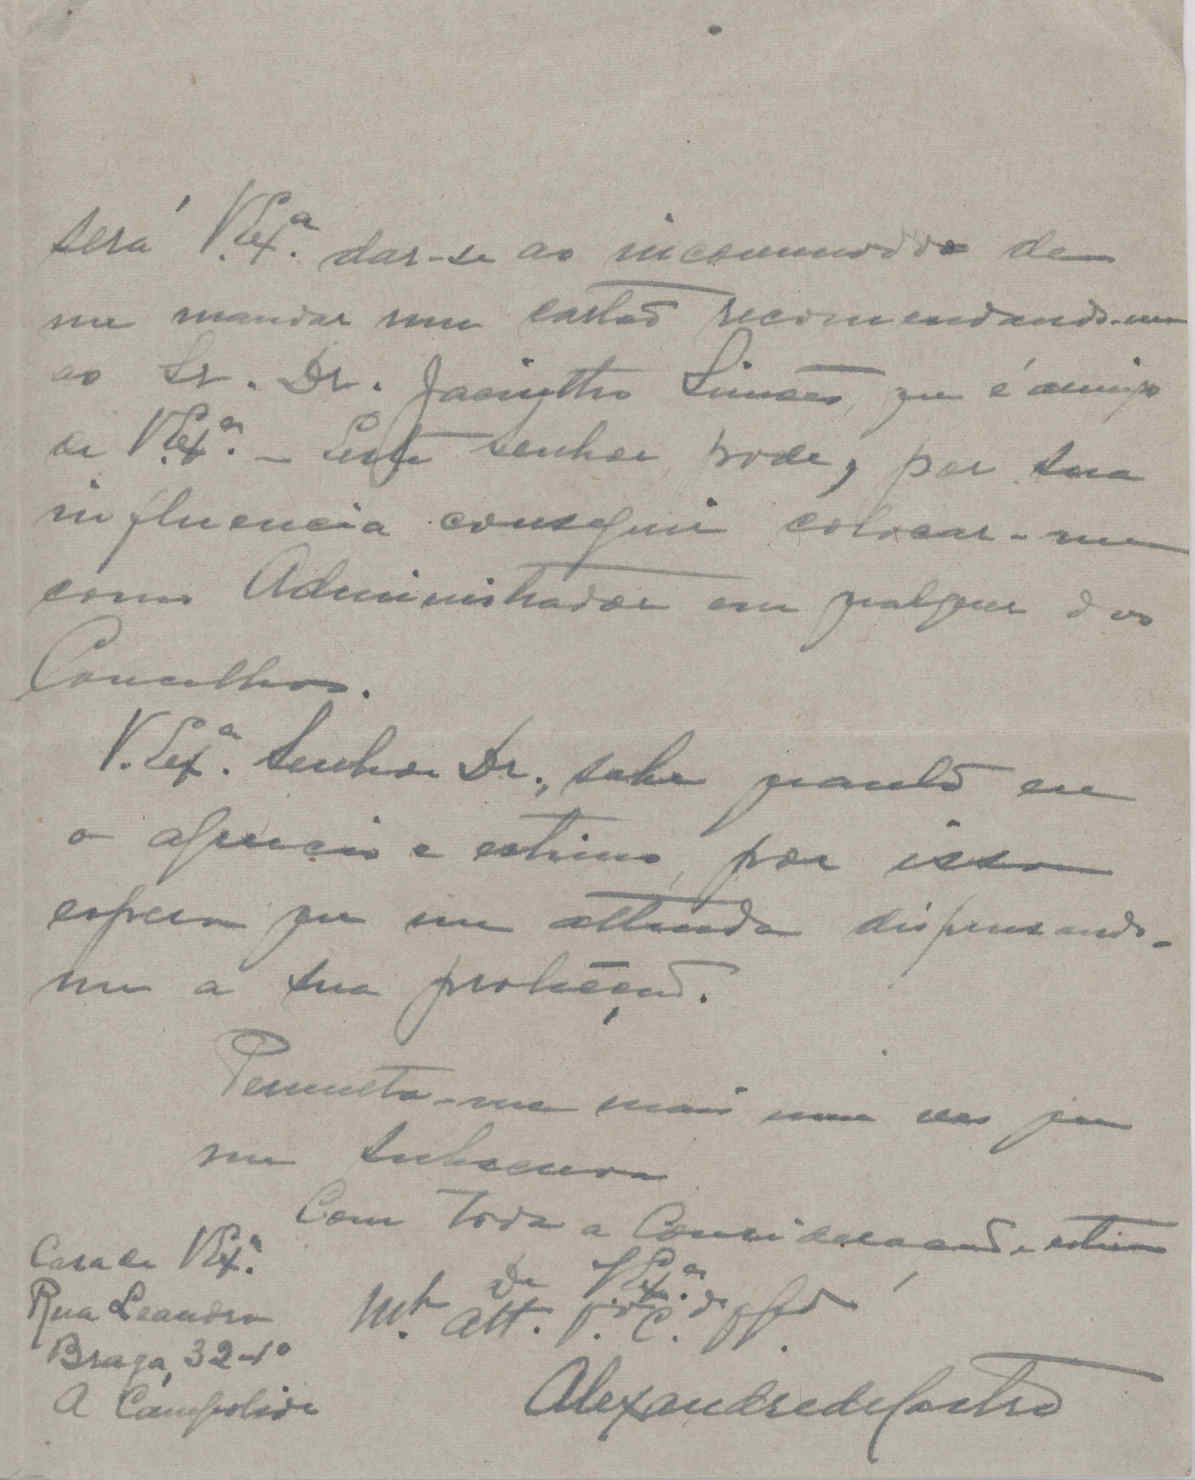 será V. Exª. dar-se ao incommodo de
me mandar um cartão recomendando-me
ao Sr. Dr. Jacintho Simões, que é amigo
de V. Exª. – Este senhor pode, por sua
influencia conseguir colocar-me
como Administrador em qualquer dos
Concelhos.
V. Exª. Senhor Dr., sabe quanto eu
o aprecio e estimo, por isso
espero que me attenda dispensando-
me a sua protecção.
Permitta-me mais uma vez que
me subscreva
Com toda a Consideração e estima
De V. Exª.
Mt. Att. V.
Alexandre de Castro
Casa de V. Exª.
Rua Leandro
Braga, 32-1º
A Campolide